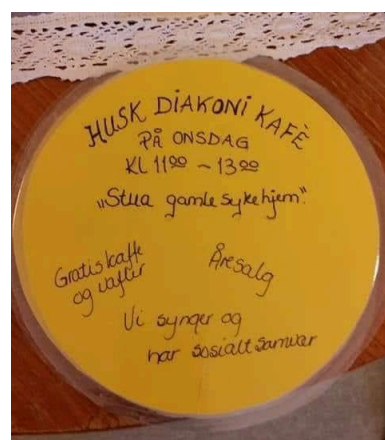 HUSK DIAKONI KAFÈ
PÅ ONSDAG
KL 11⁰⁰ - 13⁰⁰
"Stua gamle sykehjem".
Gratis kaffe
og vafler
Åresalg
Vi synger og
har sosialt samvær